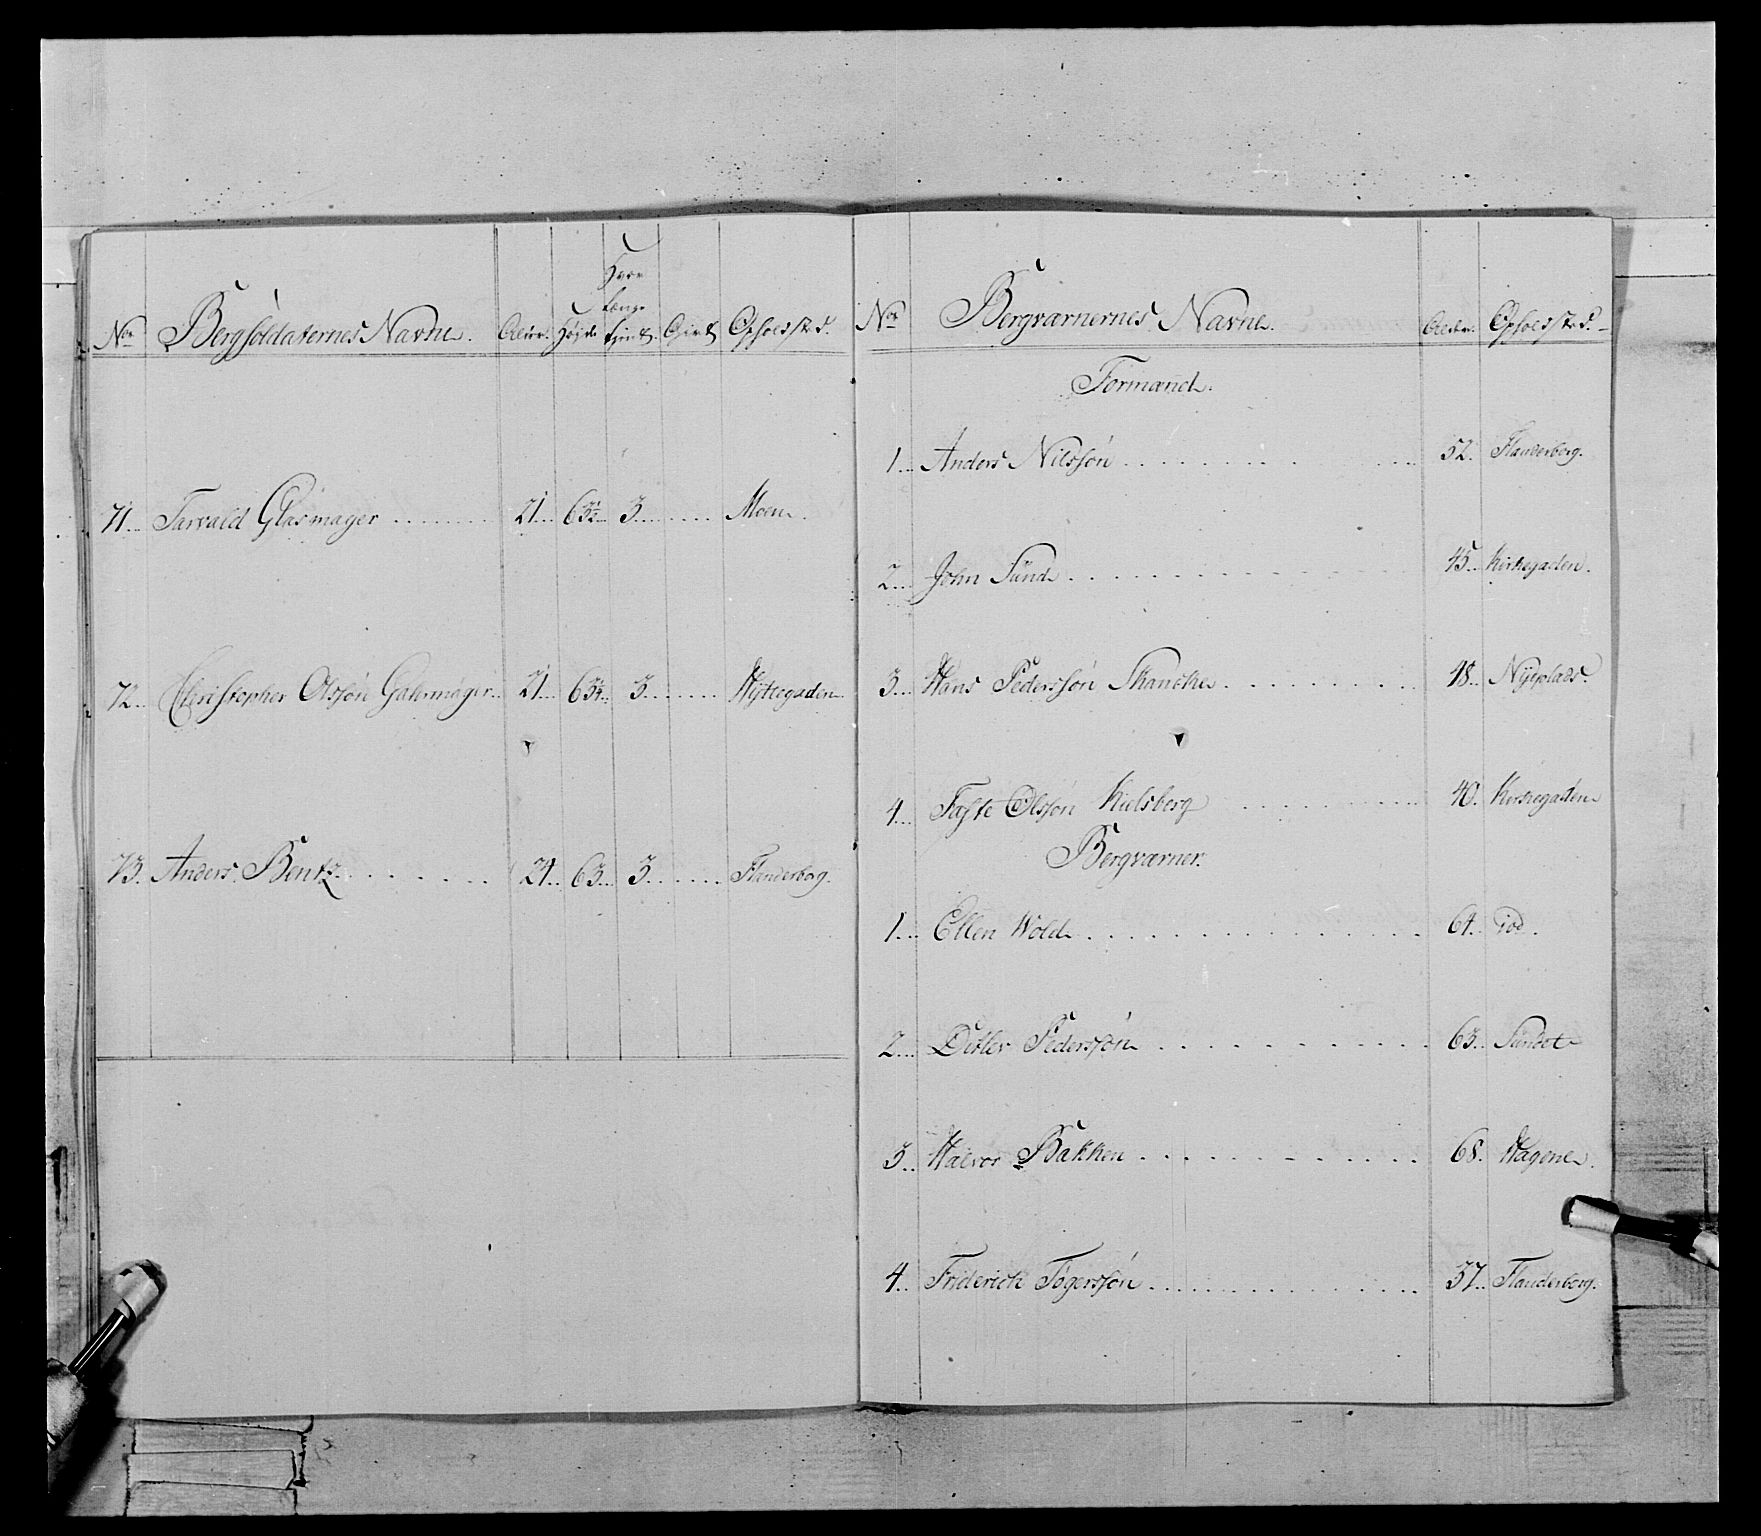 Nor Bergsoldaternes Navne. Alder. Højde Opholdsted.
71... Tarvald Glasmager ........ 21... 63½... 3........ Moen.
72... Christopher Olssøn Galermager... 21... 63¼... 3........ Hyttegaden
73. Anders Bentz........ 21... 63... 3........ Flanderborg.
Nor Bergværnernes Navne. Alder. Opholdsted.
Formænd.
1... Anders Nilssøn ........ 52. Flanderborg.
2... John Sünd ........ 45. Kirkegaden.
3... Hans Pederssøn Skancke ........ 48. Nÿeplads.
4... Tøfte Olssøn Kielsberg ........ 40. Kirkegaden
Bergværner.
1... Ellen Wold ........ 64. iod.
2... Detlev Pederssøn ........ 63. Sundet
3... Halvor Bakken ........ 68. Hagene.
4... Friderich Tøgerssøn ........ 37. Flanderborg.